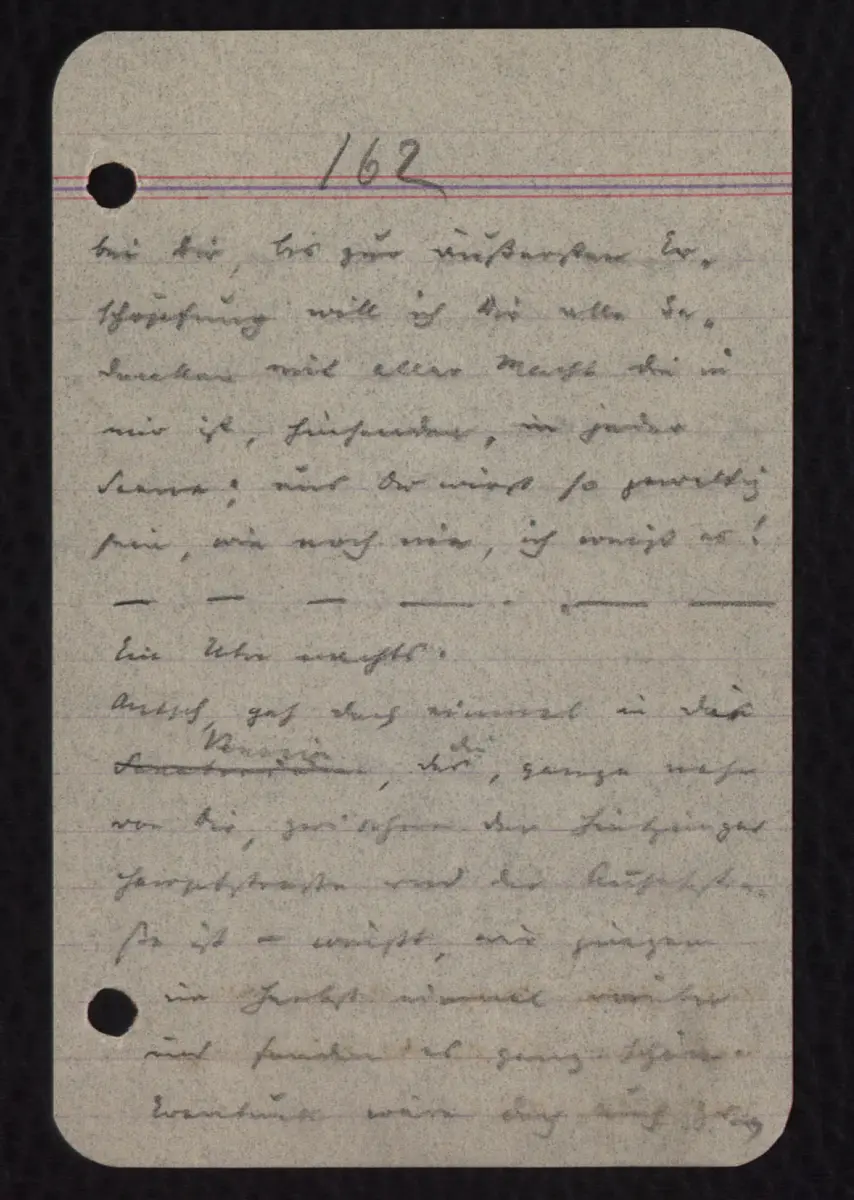 162
bei Dir, bis zur äußersten Er-
schöpfung will ich Dir alle Ge-
danken mit aller Macht die in
mir ist, hinsenden, in jeder
Scene; und Du wirst so gewaltig
sein, wie noch nie, ich weiß es!
Ein Uhr nachts.
geh doch einmal in die
Pension
die, ganz nahe
von Dir, zwischen der Hietzinger
Hauptstrasse und der
ße ist – weißt, wir giengen
im Herbst einmal vorüber
und fanden es ganz schön.
Eventuell wäre doch auch